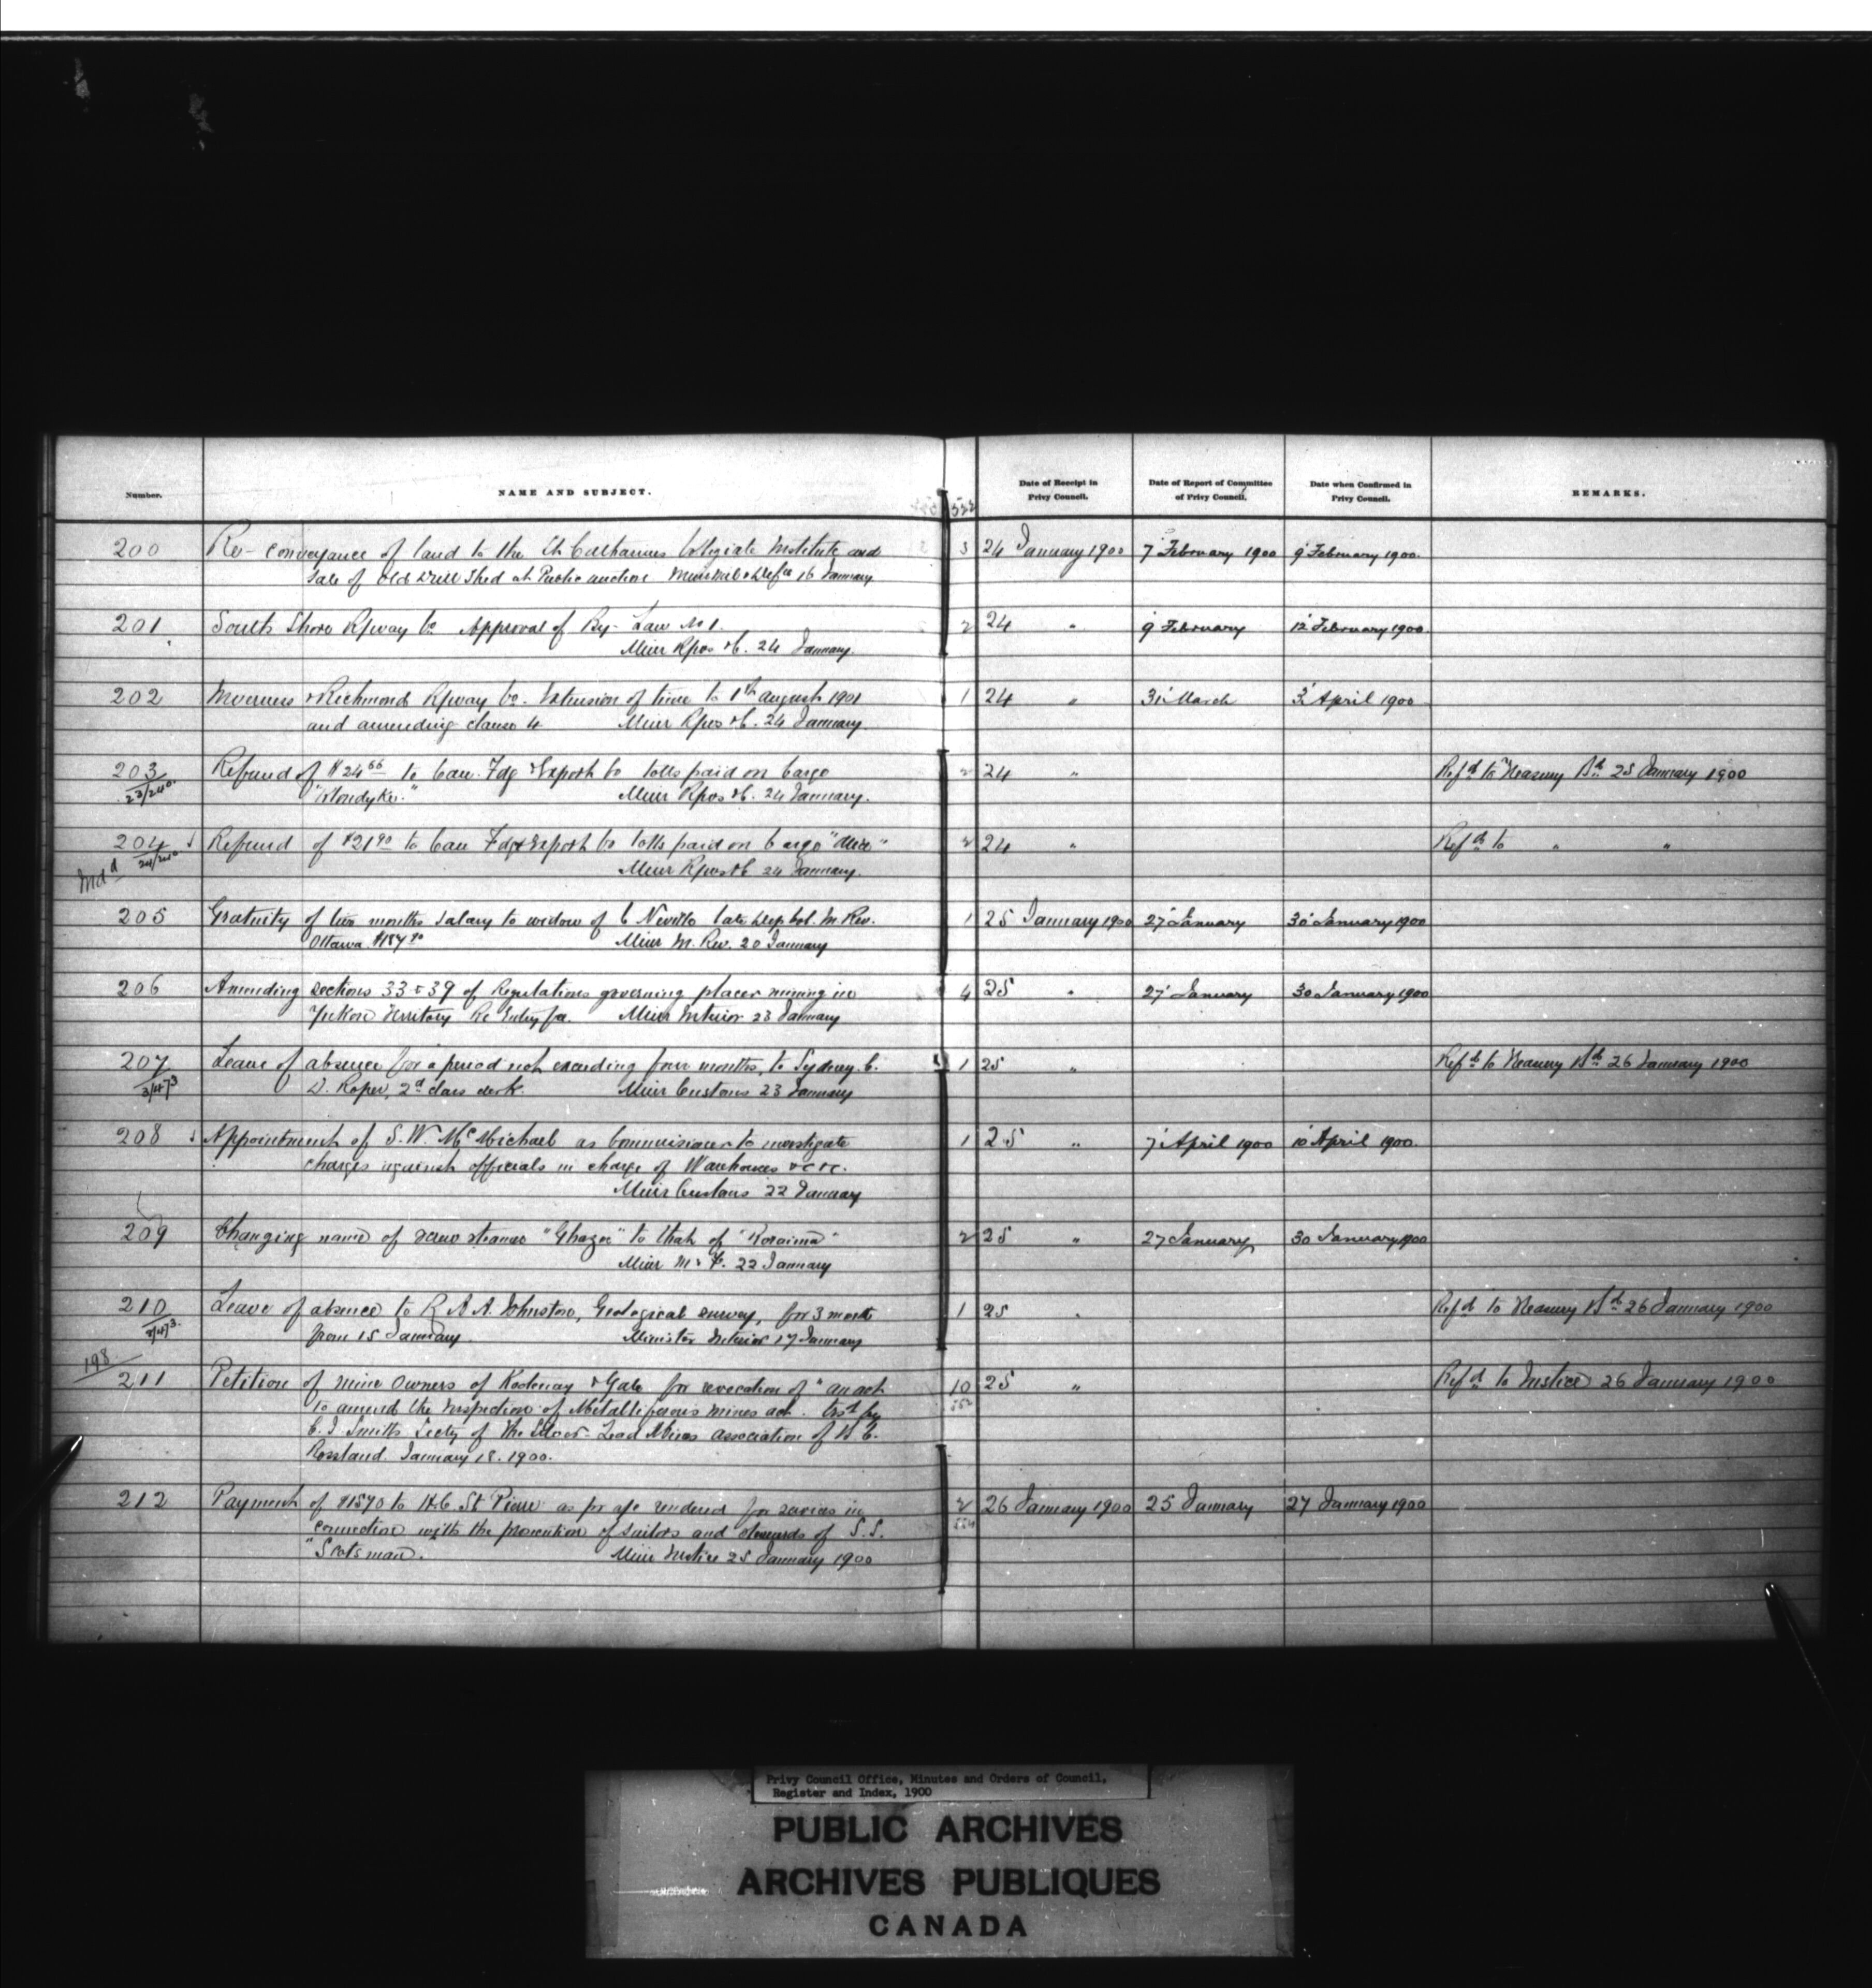 Number.
NAME AND SUBJECT.
Date of Receipt in Privy Council.
Date of Report of Committee of Privy Council.
Date when Confirmed in Privy Council.
REMARKS.
200 Re-conveyance of land to the St Catharines Collegiate Institute and 3 24 January 1900 7 February 1900 9 February 1900.
sale of old drill shed at Public auction Minr Mil & Defce 16 January
201 South Shore Rpway Co Approval of By-Law No 1. 2 24 " 9 February 12 February 1900.
Minr Rpos & C. 24 January.
202 Inverness & Richmond Rpway Co. Extension of time to 1st august 1901 1 24 " 31 March 3 April 1900
and amending clause 4 Minr Rpos & C. 24 January.
203 Refund of $24 66 to Can. Fdg & Export Co tolls paid on Cargo 2 24 " Refd to Treasury Bd 25 January 1900
23/240. "Klondyke." Minr Rpos & C. 24 January.
204 Refund of $21 90 to Can Fdg & Export Co tolls paid on Cargo "Alice" 2 24 " Refd to " "
24/240 Minr Rpos & C 24 January.
205 Gratuity of two months salary to widow of C Neville late Dep Col. In. Rev. 1 25 January 1900 27 January 30 January 1900
Ottawa Minr In. Rev. 20 January
206 Amending sections 33 & 39 of Regulations governing placer mining in 4 25 " 27 January 30 January 1900
Yukon Territory Re Entry for. Minr Interior 23 January
207 Leave of absence for a period not exceeding four months, to Sydney C. 1 25 " Refd to Treasury Bd 26 January 1900
3/473 D. Roper, 2d class clerk. Minr Customs 23 January
208 Appointment of S. W. McMichael as Commissioner to investigate 1 25 " 7 April 1900 10 April 1900.
charges against officials in charge of Warehouses &c &c.
Minr Customs 22 January
209 Changing name of screw steamer "Ghazee" to that of "Roraima" 2 25 " 27 January 30 January 1900
Minr M & F. 22 January
210 Leave of absence to R A A. Johnston, Geological survey, for 3 months 1 25 " Refd to Treasury Bd 26 January 1900
from 15 January Minister Interior 17 January
198
211 Petition of mine owners of Kootenay & Yale for revocation of "an act 10 25 " Refd to Justice 26 January 1900
to amend the Inspection of Metalliferous mines act. by
C. I. Smith Secty of the Silver-Lead Mines association of B. C.
Rossland January 18. 1900.
212 Payment of $1570 to H. C. St Pierre as pr a/c rendered for services in 2 26 January 1900 25 January 27 January 1900
connection with the prosecution of sailors and stewards of S. S.
"Scotsman. Minr Justice 25 January 1900
Privy Council Office, Minutes and Orders of Council,
Register and Index, 1900
PUBLIC ARCHIVES
ARCHIVES PUBLIQUES
CANADA